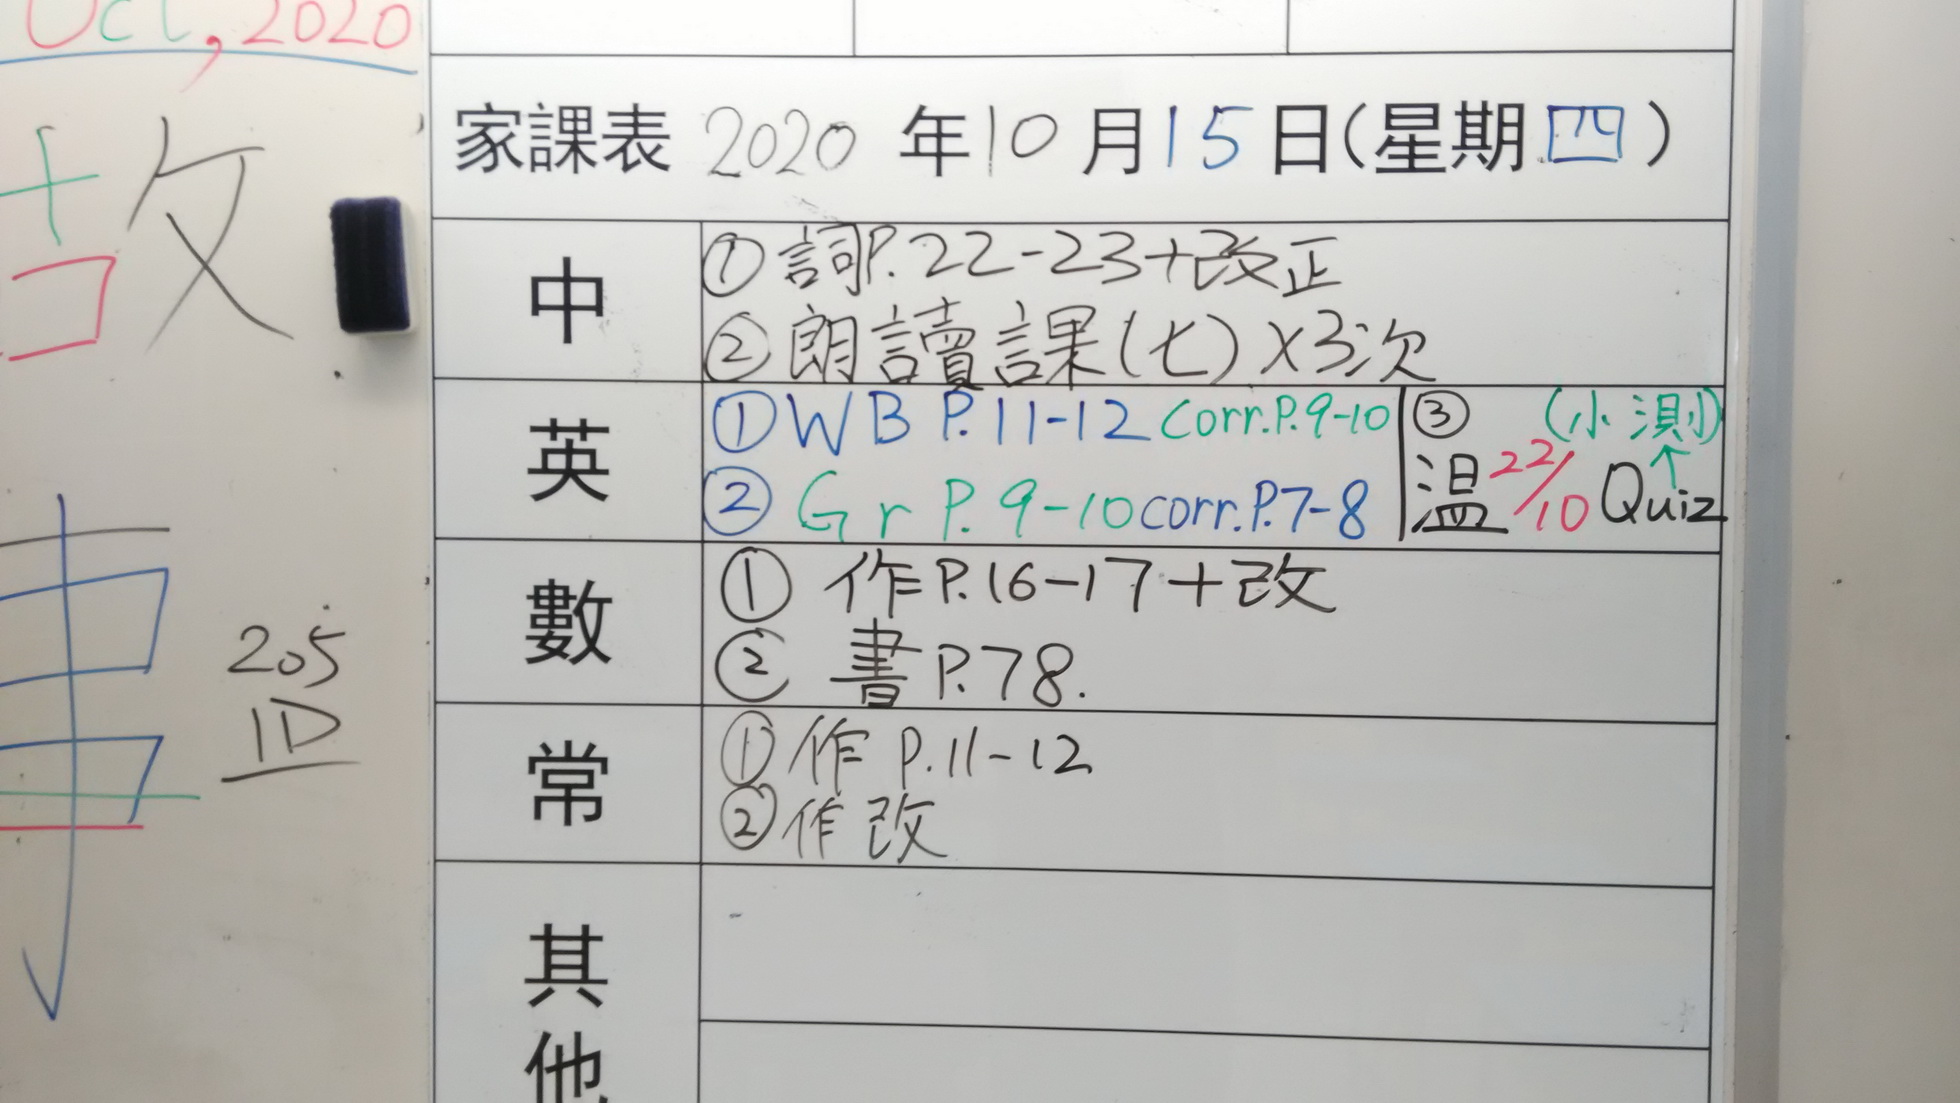 Oct, 2020
故
事
205
1D
家課表 2020 年 10 月 15 日(星期四)
中
① 詞P.22-23+改正
② 朗讀課(七)×3次
英
① WB P.11-12 Corr.P.9-10
② Gr P.9-10 corr.P.7-8
③ (小測)
温 22/10 Quiz
數
① 作P.16-17+改
② 書P.78.
常
① 作 P.11-12
② 作改
其他